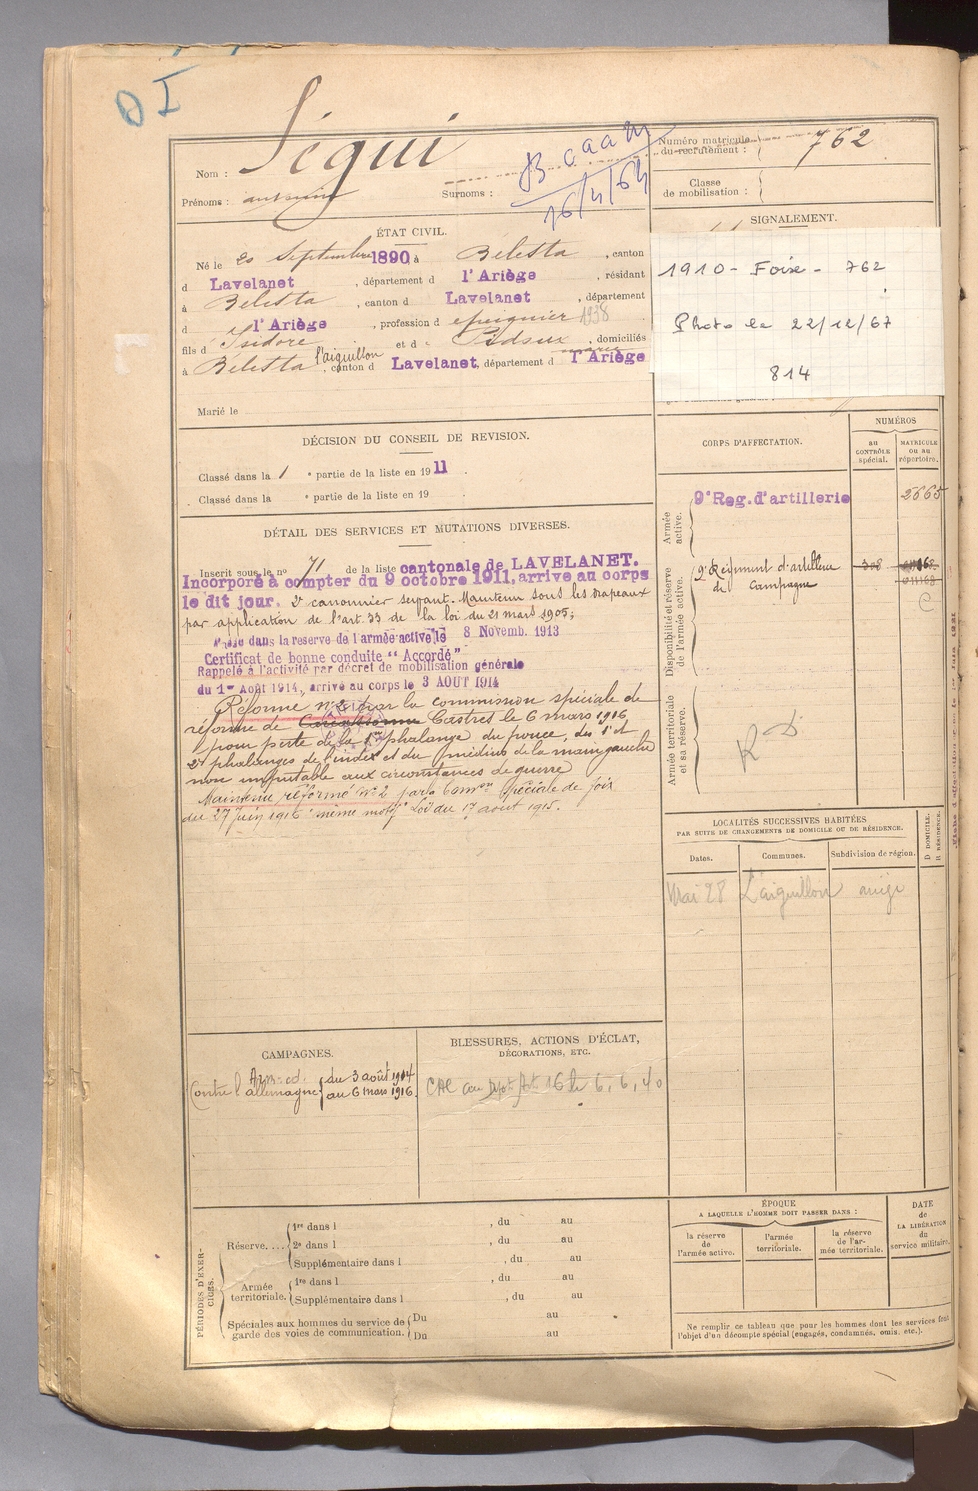 Nom : Ségui
Numéro matricule
du recrutement : 762
Prénoms :
Surnoms :
B caam
16/4/64
Classe
de mobilisation :
ÉTAT CIVIL.
Né le 20 Septembre 1890, à Bélesta, canton
d Lavelanet, département d l'Ariège, résidant
à Bélesta, canton d Lavelanet, département
d l'Ariège, profession d 1938
fils d Isidore et d , domiciliés
à Bélesta l'aiguillon, canton d Lavelanet, département d l'Ariège
Marié le
SIGNALEMENT.
1910 - Foix - 762
Photo le 22/12/67
814
DÉCISION DU CONSEIL DE REVISION.
Classé dans la 1 e partie de la liste en 1911.
Classé dans la e partie de la liste en 19
DÉTAIL DES SERVICES ET MUTATIONS DIVERSES.
Inscrit sous le no 71 de la liste cantonale de LAVELANET.
Incorporé à compter du 9 octobre 1911, arrivé au corps
le dit jour. 2e canonnier servant. Maintenu sous les drapeaux
par application de l'art. 33 de la loi du 21 mars 1905;
Passé dans la reserve de l'armée active le 8 Novemb. 1913
Certificat de bonne conduite "Accordé"
Rappelé à l'activité par décret de mobilisation générale
du 1er Août 1914, arrivé au corps le 3 AOUT 1914
Réformé n° 2 par la commission spéciale de
réforme de Carcassonne Castres le 6 mars 1916
pour perte de la 1re phalange du pouce, des 1e et
2e phalanges de l'index et du médius de la main gauche
non imputable aux circonstances de guerre
Maintenu réformé N° 2 par Comon spéciale de foix
du 27 Juin 1916 "même motif" Loi du 17 août 1915.
CORPS D'AFFECTATION.
NUMÉROS
AU
CONTRÔLE
spécial.
MATRICULE
ou au
répertoire.
Armée
active.
9e Reg. d'artillerie 2665
Disponibilité et réserve
de l'armée active.
9e Régiment d'artillerie
de Campagne
C
Armée territoriale
et sa réserve.
R D
LOCALITÉS SUCCESSIVES HABITÉES
PAR SUITE DE CHANGEMENTS DE DOMICILE OU DE RÉSIDENCE.
Dates.
Communes.
Subdivision de région.
D DOMICILE.
R RÉSIDENCE.
Mai 28 L'aiguillon
CAMPAGNES.
Contre l'allemagne du 3 août 1914
au 6 mars 1916.
BLESSURES, ACTIONS D'ÉCLAT,
DÉCORATIONS, ETC.
16 le 6.6.40
PÉRIODES D'EXERCICES.
Réserve.... 1re dans l , du au
2e dans l , du au
Supplémentaire dans l , du au
Armée
territoriale. 1re dans l , du au
Supplémentaire dans l , du au
Spéciales aux hommes du service de
garde des voies de communication. Du au
Du au
ÉPOQUE
A LAQUELLE L'HOMME DOIT PASSER DANS :
la réserve
de
l'armée active.
l'armée
territoriale.
la réserve
de l'armée territoriale.
DATE
de
LA LIBÉRATION
du
service militaire.
Ne remplir ce tableau que pour les hommes dont les services font
l'objet d'un décompte spécial (engagés, condamnés, omis, etc.).